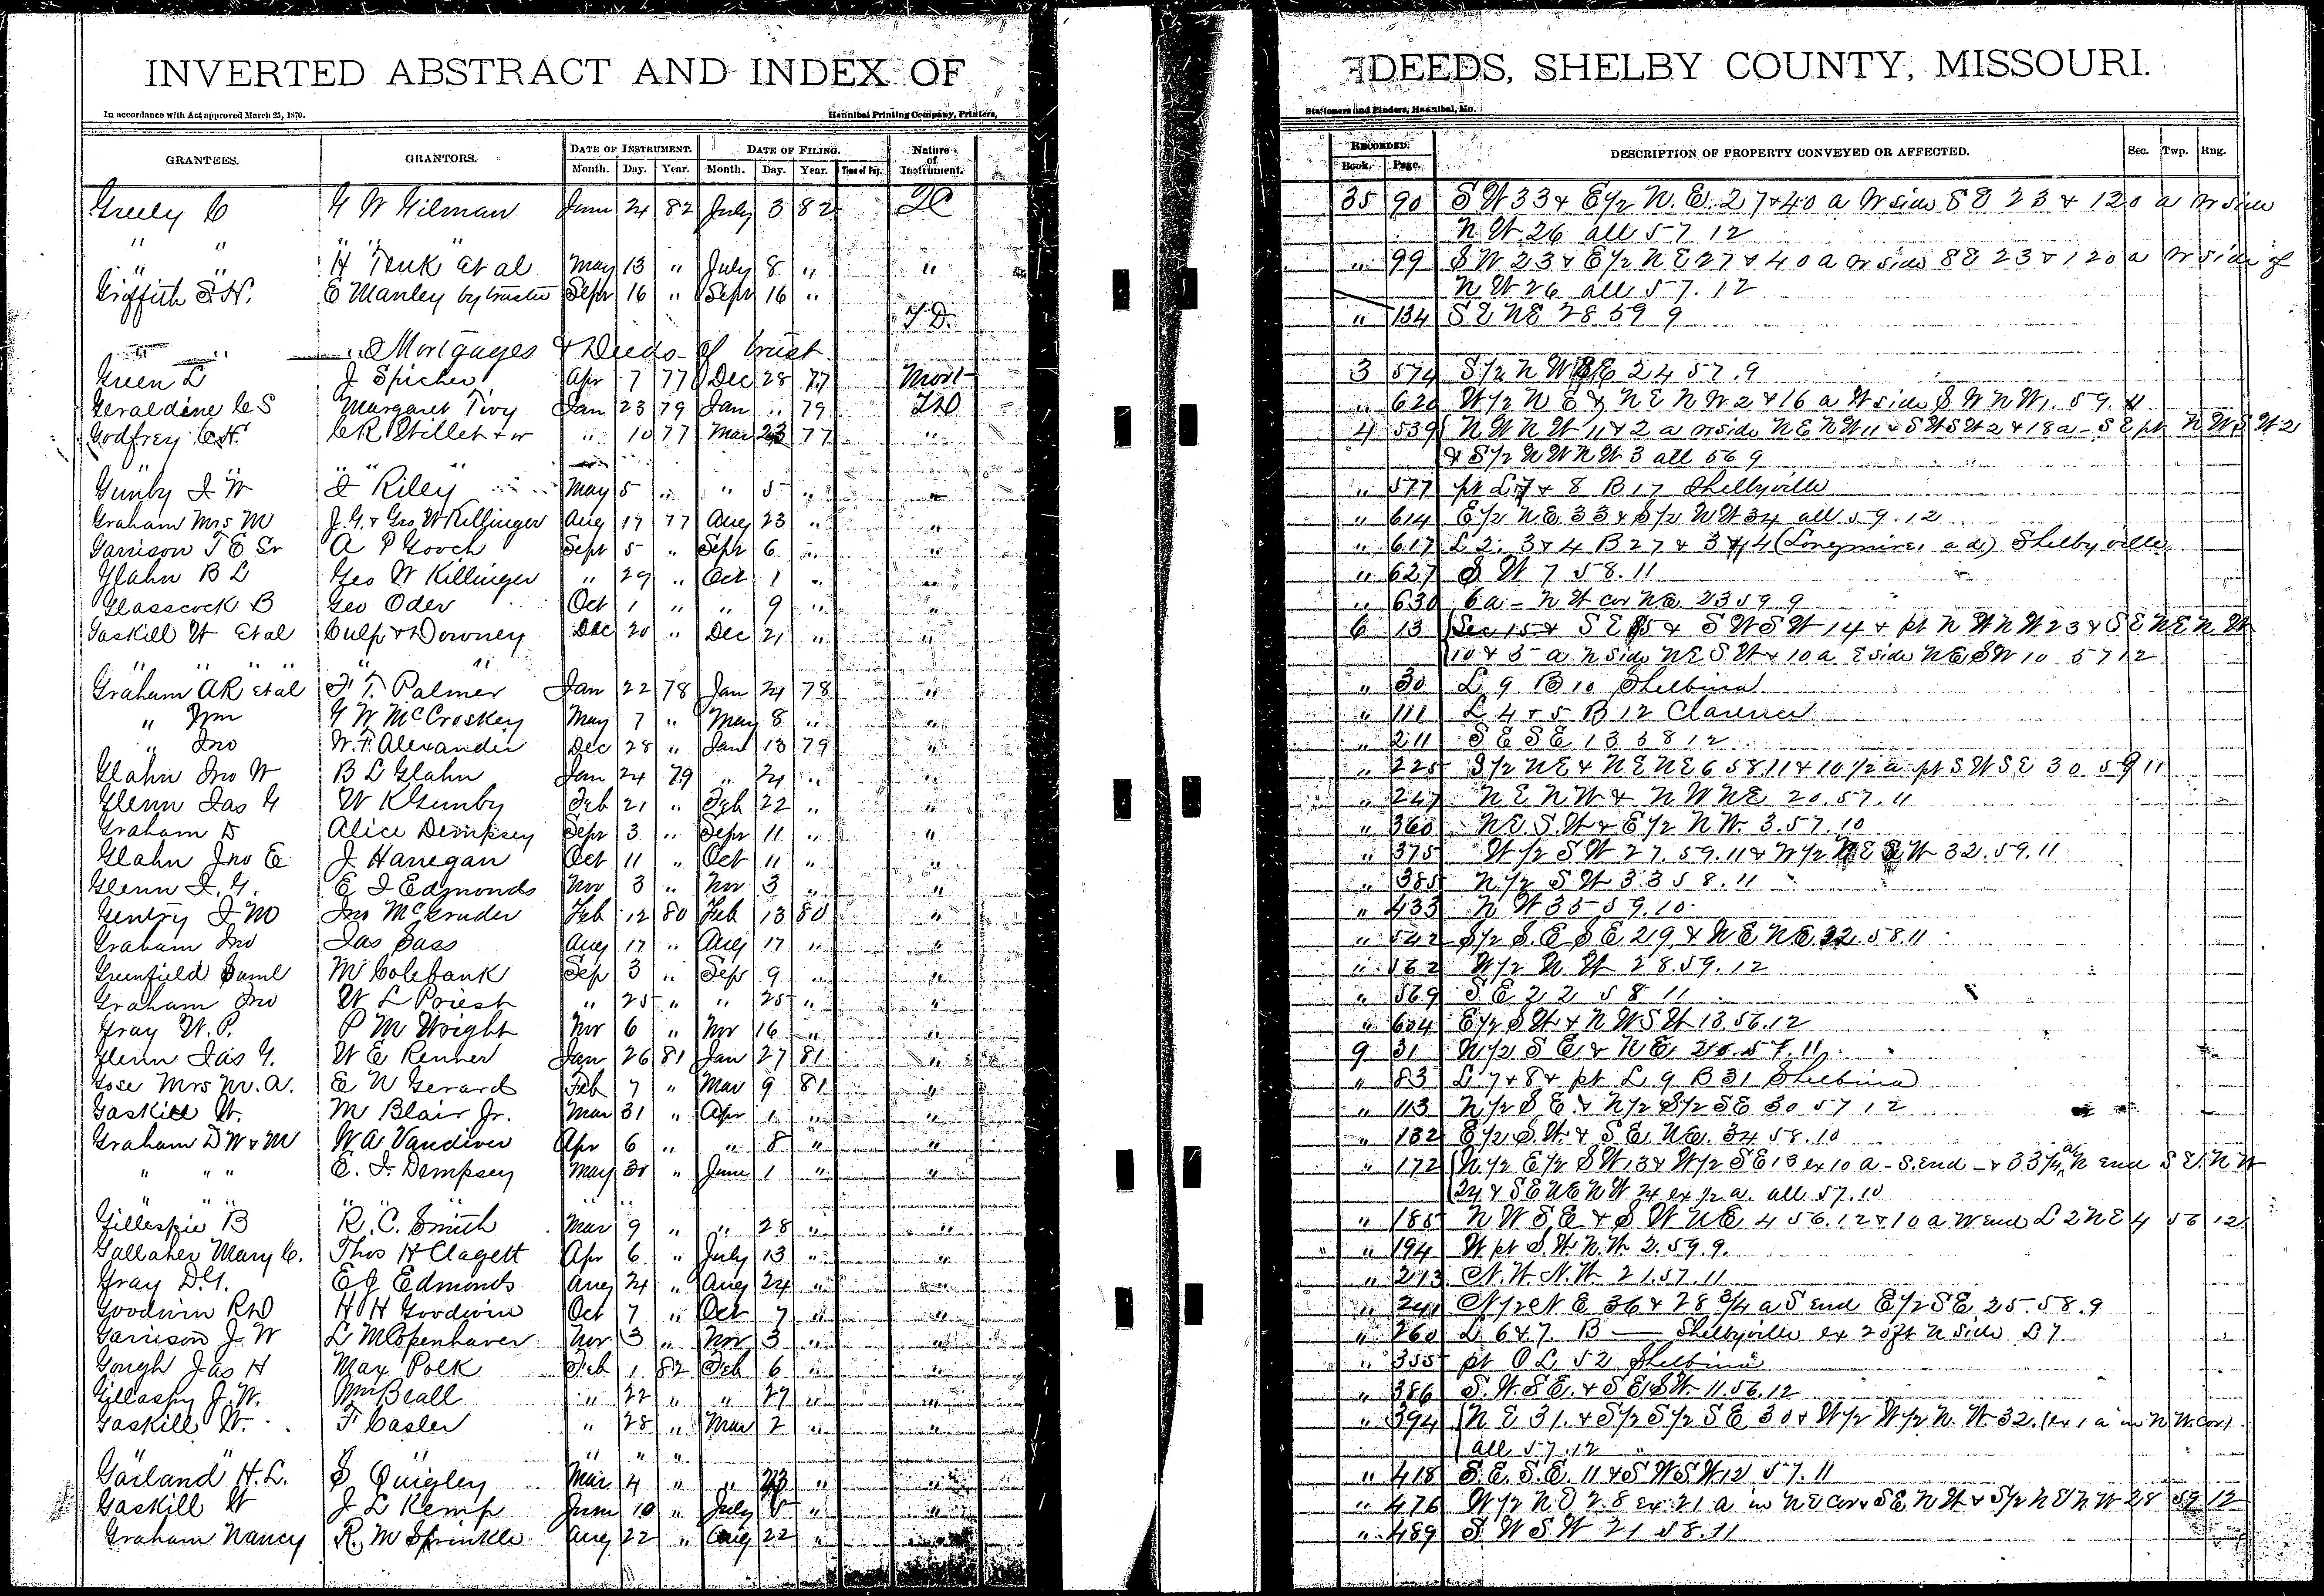 INVERTED ABSTRACT AND INDEX OF DEEDS, SHELBY COUNTY, MISSOURI.
In accordance with Act approved March 25, 1870. Hannibal Printing Company, Printers, Stationers and Binders, Hannibal, Mo.
GRANTEES. GRANTORS. DATE OF INSTRUMENT. DATE OF FILING. Nature of Instrument. RECORDED. DESCRIPTION OF PROPERTY CONVEYED OR AFFECTED. Sec. Twp. Rng.
Month. Day. Year. Month. Day. Year. Time of Day. Book. Page.
Greely C G W Gilman June 24 82 July 3 82 35 90 S W 33 & E 1/2 N. E. 27 & 40 a N side S E 23 & 120 a N side
" " " " " N W 26 all 57 12
" " H Tenk et al May 13 " July 8 " " " 99 S W 23 & E 1/2 N E 27 & 40 a N side S E 23 & 120 a N side of
N W 26 all 57. 12
Griffith S. H. E Manley by trustee Sepr 16 " Sepr 16 " T D. " 134 S E N E 28 59 9
" " Mortgages & Deeds of trust
Green L J Spicher Apr 7 77 Dec 28 77 Mort 3 574 S 1/2 N W S E 24 57. 9
Geraldine C S Margaret Tivy Jan 23 79 Jan " 79 " 620 W 1/2 N E & N E N W 2 & 16 a W side S W N W 1. 59.
Godfrey C H. C R Stillet & w " 10 77 Mar 23 77 " 4 539 N W N W 11 & 2 a N side N E N W 11 & S W S W 2 & 18 a - S E pt N W S W 2
" " & S 1/2 N W N W 3 all 56 9
Gunby J W J Riley May 5 " " 5 " " " 577 pt L 7 & 8 B 17 Shelbyville
Graham Mrs M J. G. & Geo W Killinger Aug 17 77 Aug 23 " " " 614 E 1/2 N E 33 & S 1/2 N W 34 all 59. 12
Garrison J E Sr A P Gooch Sept 5 " Sepr 6 " " " 617 L 2. 3 & 4 B 27 & 3 & 4 (Longmires ad.) Shelbyville
Glahn B L Geo W Killinger " 29 " Oct 1 " " " 627 S W 7 58. 11
Glasscock B Geo Oder Oct 1 " " 9 " " " 630 6 a - N W cor N E 23 59 9
Gaskill W et al Culp & Downey Dec 20 " Dec 21 " " 6 13 Sec 15 & S E 15 & S W S W 14 & pt N W N W 23 & S E N E N W
" " " " " " 10 & 5 a N side N E S W & 10 a E side N E S W 10 57 12
Graham A R et al F. T. Palmer Jan 22 78 Jan 24 78 " " 30 L 9 B 10 Shelbina
" Wm G W McCroskey May 7 " May 8 " " " 111 L 4 & 5 B 12 Clarence
" Jno W. F. Alexander Dec 28 " Jan 13 79 " " 211 S E S E 13 58 12
Glahn Jno W B L Glahn Jan 24 79 " 24 " " " 225 S 1/2 N E & N E N E 6 58 11 & 10 1/2 a pt S W S E 30 59 11
Glenn Jas G W K Gunby Feb 21 " Feb 22 " " " 247 N E N W & N W N E 20. 57. 11
Graham D Alice Dempsey Sepr 3 " Sepr 11 " " " 360 N E S. W & E 1/2 N W. 3. 57. 10
Glahn Jno E J Hanegan Oct 11 " Oct 11 " " " 375 W 1/2 S W 27. 59. 11 & N 1/2 W 32. 59. 11
Glenn J. G. E J Edmonds Nov 3 " Nov 3 " " " 385 N 1/2 S W 33 58. 11
Gentry J M Jno McGruder Feb 12 80 Feb 13 80 " " 433 N W 35 59. 10
Graham Jno Jas Sass Aug 17 " Aug 17 " " " 542 S 1/2 S. E S E 29 & N E N E 32. 58. 11
Greenfield Saml M Colebank Sep 3 " Sepr 9 " " " 562 W 1/2 N W 28. 59. 12
Graham Jno W L Priest " 25 " " 25 " " " 569 S E 22 58 11
Gray W. P. P M Wright Nov 6 " Nov 16 " " " 604 E 1/2 S W & N W S W 13. 56. 12
Glenn Jas G. W E Renner Jan 26 81 Jan 27 81 " 9 31 N 1/2 S E & N E 57. 11
Gose Mrs M. A. E N Gerard Feb 7 " Mar 9 81 " " 83 L 7 & 8 & pt L 9 B 31 Shelbina
Gaskill W. M Blair Jr. Mar 31 " Apr 1 " " " 113 N 1/2 S E & N 1/2 S 1/2 S E 30 57 12
Graham D W & M W A Vandiver Apr 6 " " 8 " " " 132 E 1/2 S. W. & S E N E. 34 58. 10
" " " E. J. Dempsey May 30 " June 1 " " " 172 N 1/2 E 1/2 S W 13 & W 1/2 S E 13 ex 10 a - S. end - & 33 1/4 a N end S E. N W
" " " " " " 24 & S E N E N W 24 ex 1/2 a. all 57. 10
Gillespie B R. C. Smith Mar 9 " " 28 " " " 185 N W S E & S W N E 4 56. 12 & 10 a W end L 2 N E 4 56 12
Gallaher Mary C. Thos H Clagett Apr 6 " July 13 " " " 194 W pt S. W. N. W 2. 59. 9.
Gray D. G. E J Edmonds Aug 24 " Aug 24 " " " 213 N. W. N. W. 21. 57. 11
Goodwin R D H H Goodwin Oct 7 " Oct 7 " " " 241 N 1/2 N E 36 & 28 3/4 a S end E 1/2 S E 25. 58. 9
Garrison J W L M Copenhaver Nov 3 " Nov 3 " " " 260 L 6 & 7 B — Shelbyville ex 20 ft N side L 7
Gough Jas H Max Polk Feb 1 82 Feb 6 " " " 355 pt O L 52 Shelbina
Gillaspy J. W. Wm Beall " 22 " " 27 " " " 386 S. W. S E. & S E S W. 11. 56. 12
Gaskill W. F. Casler " 28 " Mar 2 " " " 394 N E 31. & S 1/2 S 1/2 S E 30 & W 1/2 W 1/2 N. W. 32. (ex 1 a in N W. cor).
" " " all 57. 12
Garland H. L. S Quigley Mar 4 " " 23 " " " 418 S. E. S. E. 11 & S W S W 12 57. 11
Gaskill W J L Kemp June 10 " July 5 " " " 476 W 1/2 N E 28 ex 21 a in N E cor & S E N W & S 1/2 N E N W 28 59 12
Graham Nancy R. M Sprinkle Aug 22 " Aug 22 " " " 489 S. W S W 21 58. 11